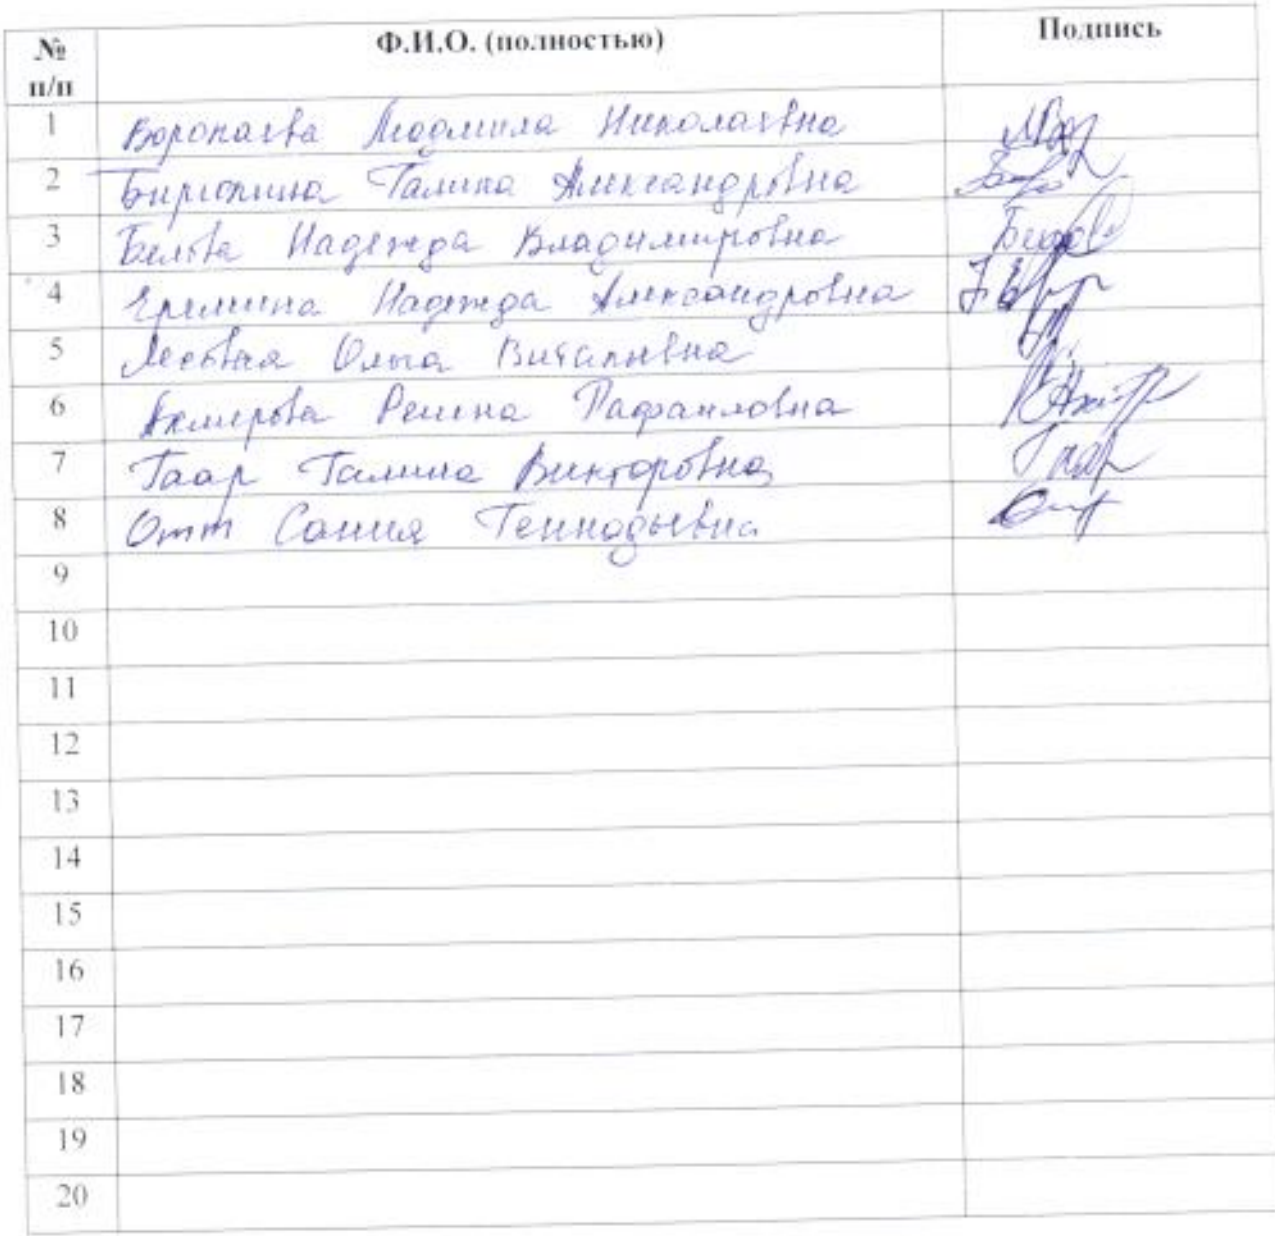 № п/п Ф.И.О. (полностью) Подпись
1 Воропаева Людмила Николаевна
2 Бирюкина Галина Александровна
3 Белова Надежда Владимировна
4 Еремина Надежда Александровна
5 Лесовая Ольга Витальевна
6 Акмирова Регина Рафаиловна
7 Гаар Галина Викторовна Гаар
8 Отт Сания Геннадьевна Отт
9
10
11
12
13
14
15
16
17
18
19
20